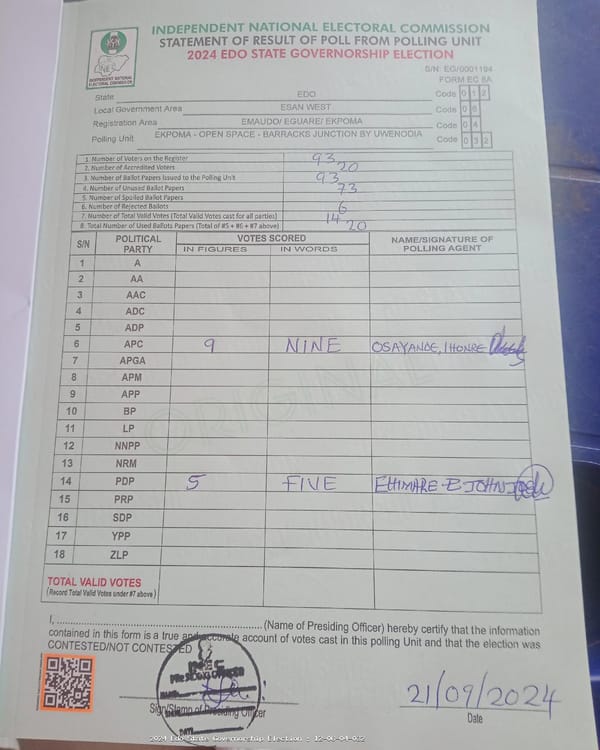 INDEPENDENT NATIONAL ELECTORAL COMMISSION
STATEMENT OF RESULT OF POLL FROM POLLING UNIT
2024 EDO STATE GOVERNORSHIP ELECTION
INDEPENDENT NATIONAL
ELECTORAL COMMISSION
S/N: EG/0001194
FORM EC 8A
State EDO Code 0 1 2
Local Government Area ESAN WEST Code 0 6
Registration Area EMAUDO/ EGUARE/ EKPOMA Code 0 4
Polling Unit EKPOMA - OPEN SPACE - BARRACKS JUNCTION BY UWENODIA Code 0 3 2
1. Number of Voters on the Register 93
2. Number of Accredited Voters 20
3. Number of Ballot Papers Issued to the Polling Unit 93
4. Number of Unused Ballot Papers 73
5. Number of Spoiled Ballot Papers
6. Number of Rejected Ballots 6
7. Number of Total Valid Votes (Total Valid Votes cast for all parties) 14
8. Total Number of Used Ballots Papers (Total of #5 + #6 + #7 above) 20
S/N POLITICAL PARTY VOTES SCORED NAME/SIGNATURE OF POLLING AGENT
IN FIGURES IN WORDS
1 A
2 AA
3 AAC
4 ADC
5 ADP
6 APC 9 NINE OSAYANDE, IHONRE
7 APGA
8 APM
9 APP
10 BP
11 LP
12 NNPP
13 NRM
14 PDP 5 FIVE EHIMARE-B JOHN
15 PRP
16 SDP
17 YPP
18 ZLP
ORIGINAL
TOTAL VALID VOTES
(Record Total Valid Votes under #7 above)
I, ............................................................ (Name of Presiding Officer) hereby certify that the information
contained in this form is a true and accurate account of votes cast in this polling Unit and that the election was
CONTESTED/NOT CONTESTED
INEC
PRESIDING OFFICER
DATE
Sign/Stamp of Presiding Officer
21/09/2024
Date
2024 Edo State Governorship Election : 12-06-04-032